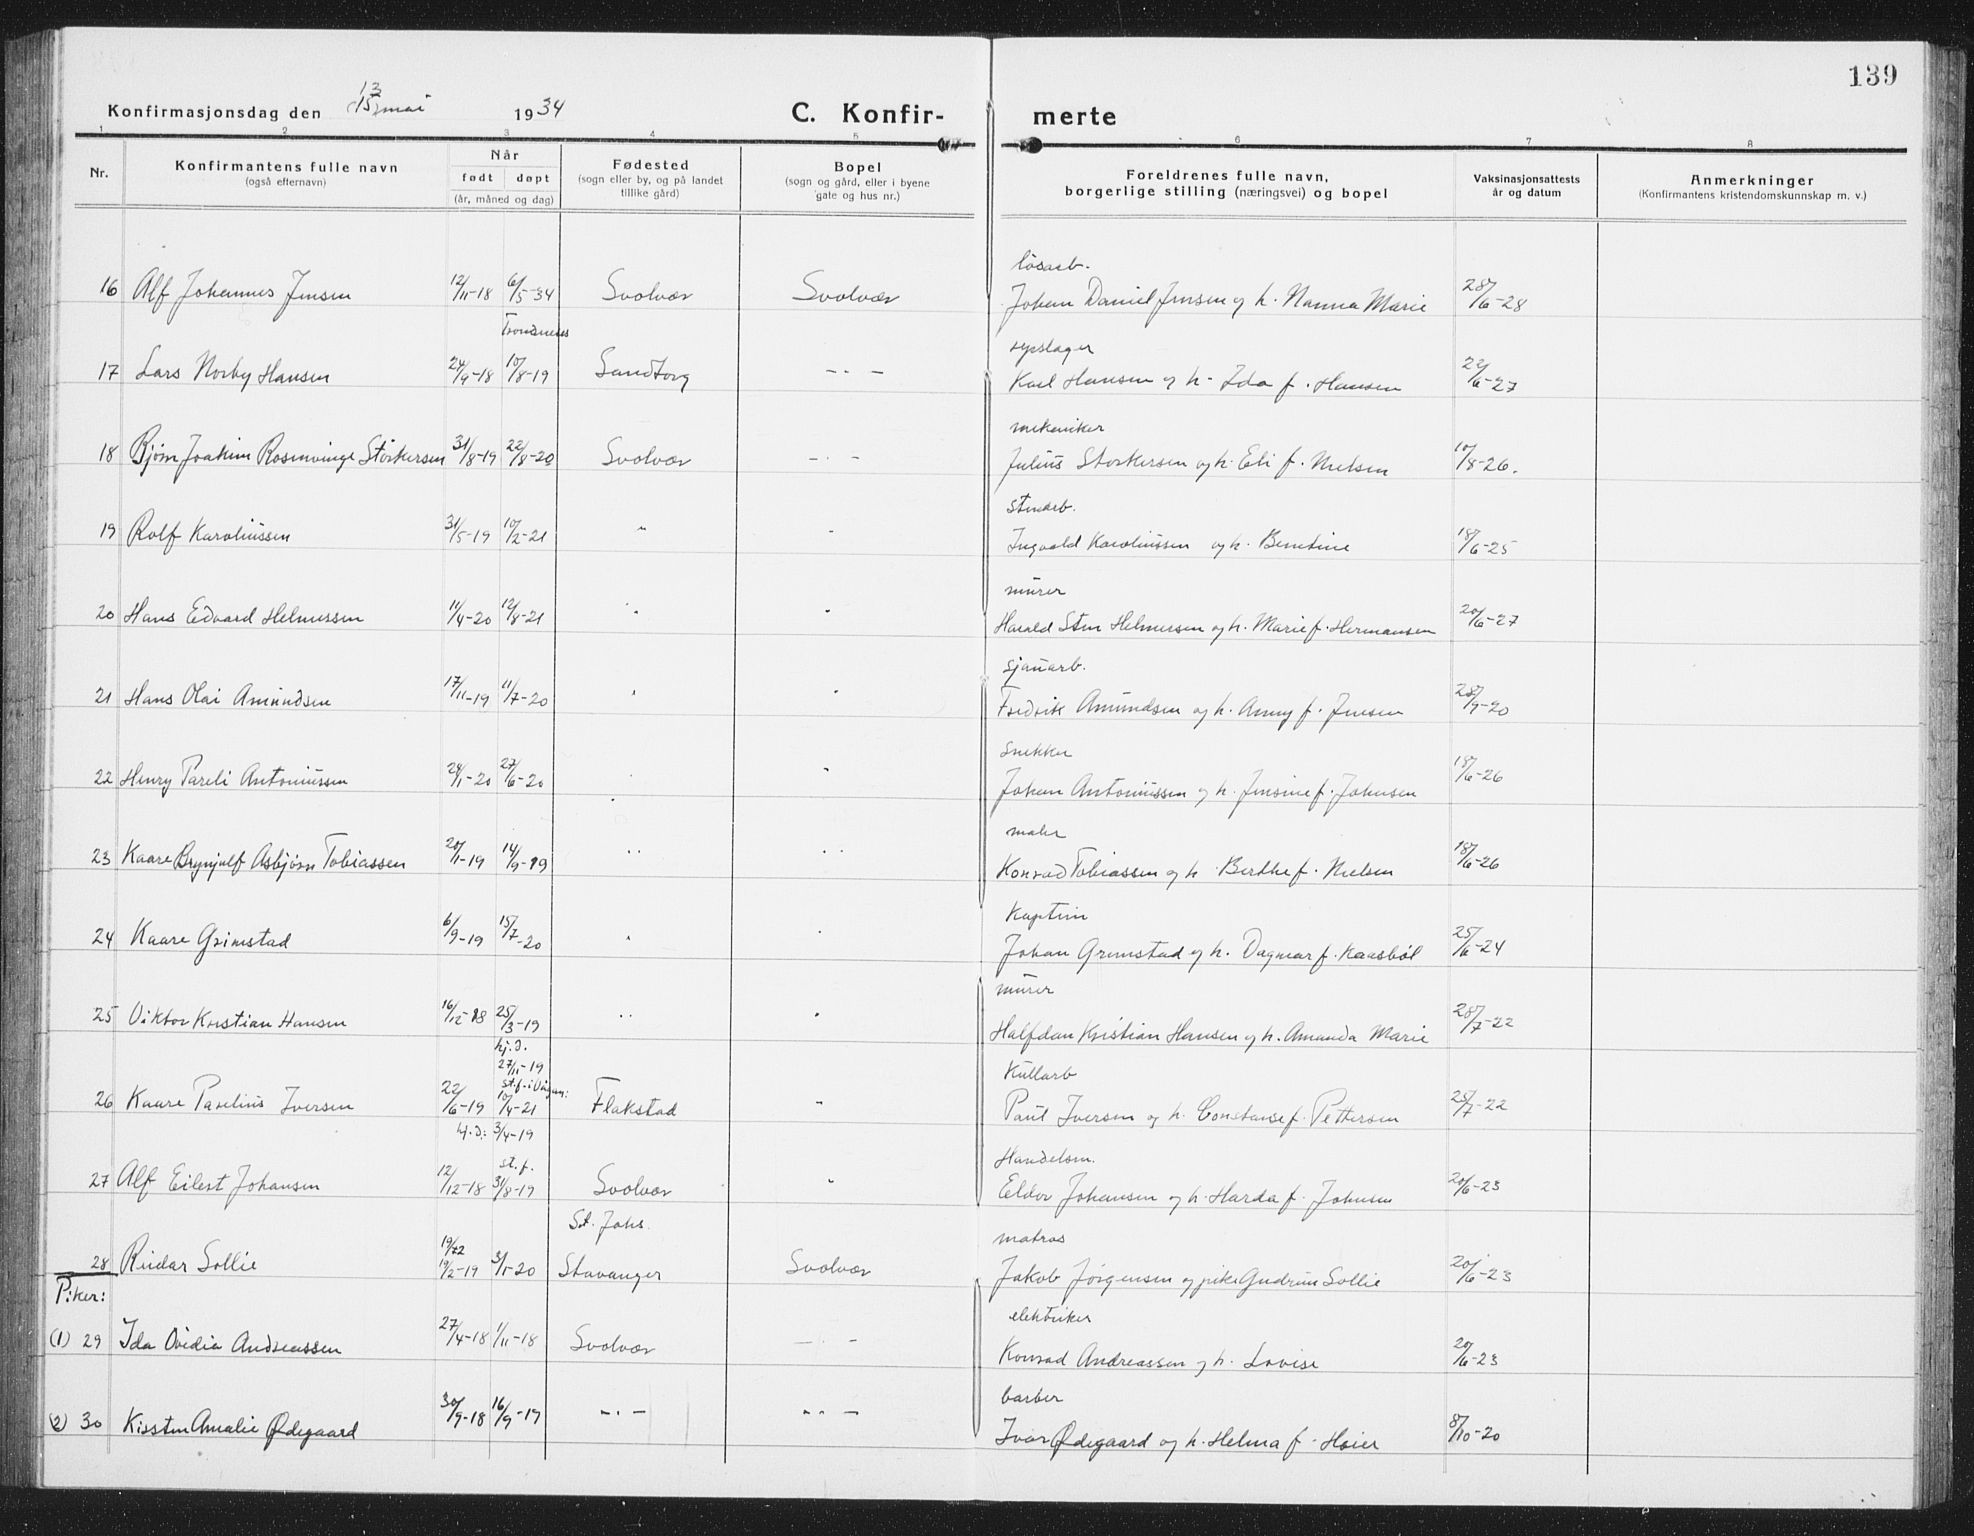 139
Konfirmasjonsdag den 13 mai 1934 C. Konfir- merte
1 2 3 4 5 6 7 8
Nr. Konfirmantens fulle navn (også efternavn) Når født døpt (år, måned og dag) Fødested (sogn eller by, og på landet tillike gård) Bopel (sogn og gård, eller i byene gate og hus nr.) Foreldrenes fulle navn, borgerlige stilling (næringsvei) og bopel Vaksinasjonsattests år og datum Anmerkninger (Konfirmantens kristendomskunnskap m. v.)
løsarb.
16 Alf Johannes Jensen 12/11-18 6/5-34 Svolvær Svolvær Johan Daniel Jensen og h. Nanna Marie 28/6-28
Trondenes
repslager
17 Lars Norby Hansen 24/9-18 10/8-19 Sandtorg -.- Karl Hansen og h. Ida f. Hansen 22/6-27
mekaniker
18 Bjørn Joakim Rosenvinge Størkersen 31/8-19 22/8-20 Svolvær -.- Julius Storkersen og h. Eli f. Nielsen 10/8-26.
stenarb.
19 Rolf Karoliussen 31/5-19 10/2-21 " - Ingvald Karoliussen og h. Benedine 18/6-25
murer
20 Hans Edvard Helmersen 11/4-20 12/8-21 " " Harald Sten Helmersen og h. Marie f. Hermansen 20/6-27
sjauarb.
21 Hans Olai Amundsen 17/11-19 11/7-20 " " Fredrik Amundsen og h. Anny f. Jensen 28/9-20
snekker
22 Henry Pareli Antoniussen 24/1-20 27/6-20 " " Johan Antoniussen og h. Jensine f. Johnsen 18/6-26
maler
23 Kaare Brynjulf Asbjørn Tobiassen 20/1-19 14/9-19 " " Konrad Tobiassen og h. Berthe f. Nielsen 18/6-26
Kaptein
24 Kaare Grimstad 6/9-19 15/7-20 " " Johan Grimstad og h. Dagmar f. Kaasbøl 25/6-24
murer
25 Viktor Kristian Hansen 16/12-18 25/3-19 " " Halfdan Kristian Hansen og h. Amanda Marie 28/7-22
hj.d. 27/11-19
st.f. i Vågan:
Kullarb
26 Kaare Parelius Iversen 22/6-19 10/4-21 Flakstad " Paul Iversen og h. Constanse f. Pettersen 25/7-22
hj.d.: 3/4-19
st.f.
Handelsm.
27 Alf Eilert Johansen 12/12-18 31/8-19 Svolvær " Eldor Johansen og h. Harda f. Johnsen 20/6-23
St. Johs.
matros
28 Reidar Sollie 19/12-19 3/1-20 Stavanger Svolvær Jakob Jørgensen og pike Gudrun Sollie 20/6-23
Piker:
elektriker
(1) 29 Ida Ovidia Andreassen 27/4-18 1/11-18 Svolvær -.- Konrad Andreassen og h. Lovise 20/6-23
barber
(2) 30 Kirsten Amalie Ødegaard 30/9-18 16/9-19 -.- -.- Ivar Ødegaard og h. Helma f. Høier 8/10-20